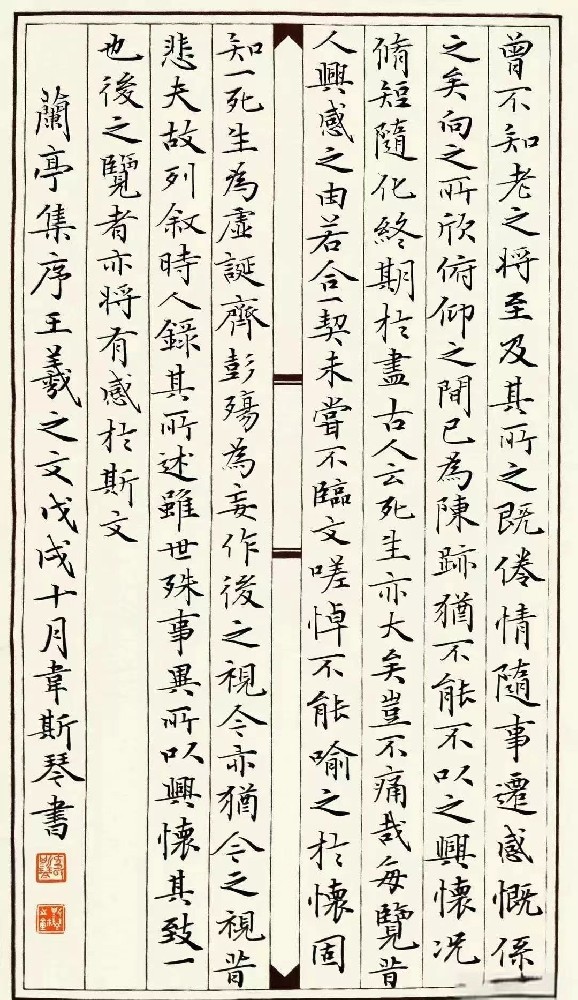 曾不知老之将至及其所之既倦情隨事遷感慨係
之矣向之所欣俯仰之間已為陳跡猶不能不以之興懷況
脩短隨化終期於盡古人云死生亦大矣豈不痛哉每覽昔
人興感之由若合一契未嘗不臨文嗟悼不能喻之於懷固
知一死生為虛誕齊彭殤為妄作後之視今亦猶今之視昔
悲夫故列叙時人錄其所述雖世殊事異所以興懷其致一
也後之覽者亦将有感於斯文
蘭亭集序王羲之文戊戌十月韋斯琴書